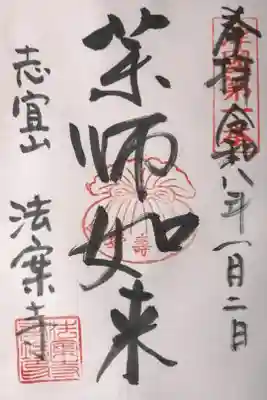 奉拝 令和八年一月二日
薬師如来
志宜山 法案寺